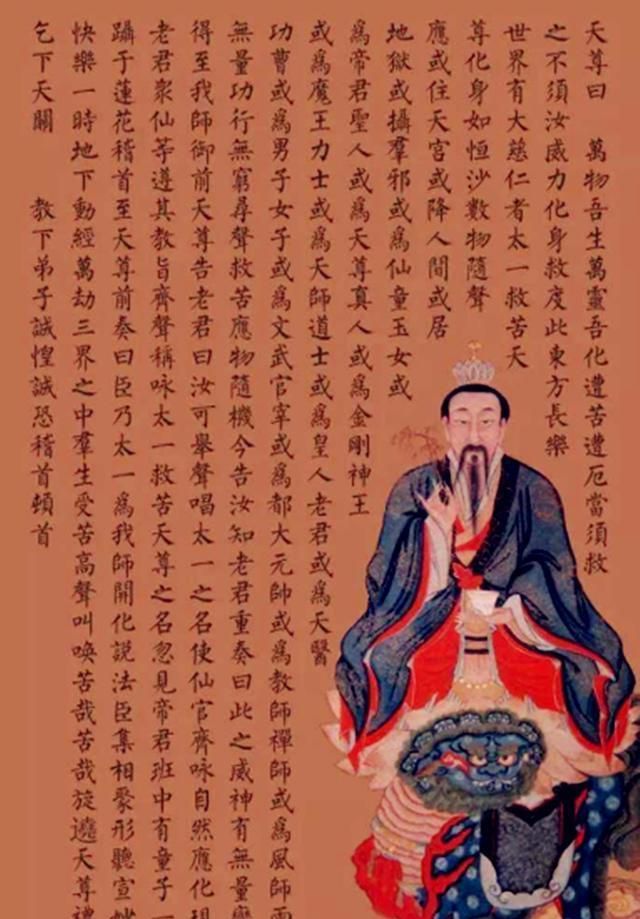 天尊曰　萬物吾生萬靈吾化遭苦遭厄當須救
之不須汝威力化身救度此東方長樂
世界有大慈仁者太一救苦天
尊化身如恒沙數物隨聲
應或住天宮或降人間或居
地獄或攝羣邪或爲仙童玉女或
爲帝君聖人或爲天尊真人或爲金剛神王
或爲魔王力士或爲天師道士或爲皇人老君或爲天醫
功曹或爲男子女子或爲文武官宰或爲都大元帥或爲教師禪師或爲風師
無量功行無窮尋聲救苦應物隨機今告汝知老君重奏曰此之威神有無量
得至我師御前天尊告老君曰汝可舉聲唱太一之名使仙官齊咏自然應化現
老君衆仙等遵其教旨齊聲稱咏太一救苦天尊之名忽見帝君班中有童子一
躡于蓮花稽首至天尊前奏曰臣乃太一爲我師開化説法臣集相聚形聽宣
快樂一時地下動經萬劫三界之中羣生受苦高聲叫喚苦哉苦哉旋遶天尊禮
乞下天關　教下弟子誠惶誠恐稽首頓首